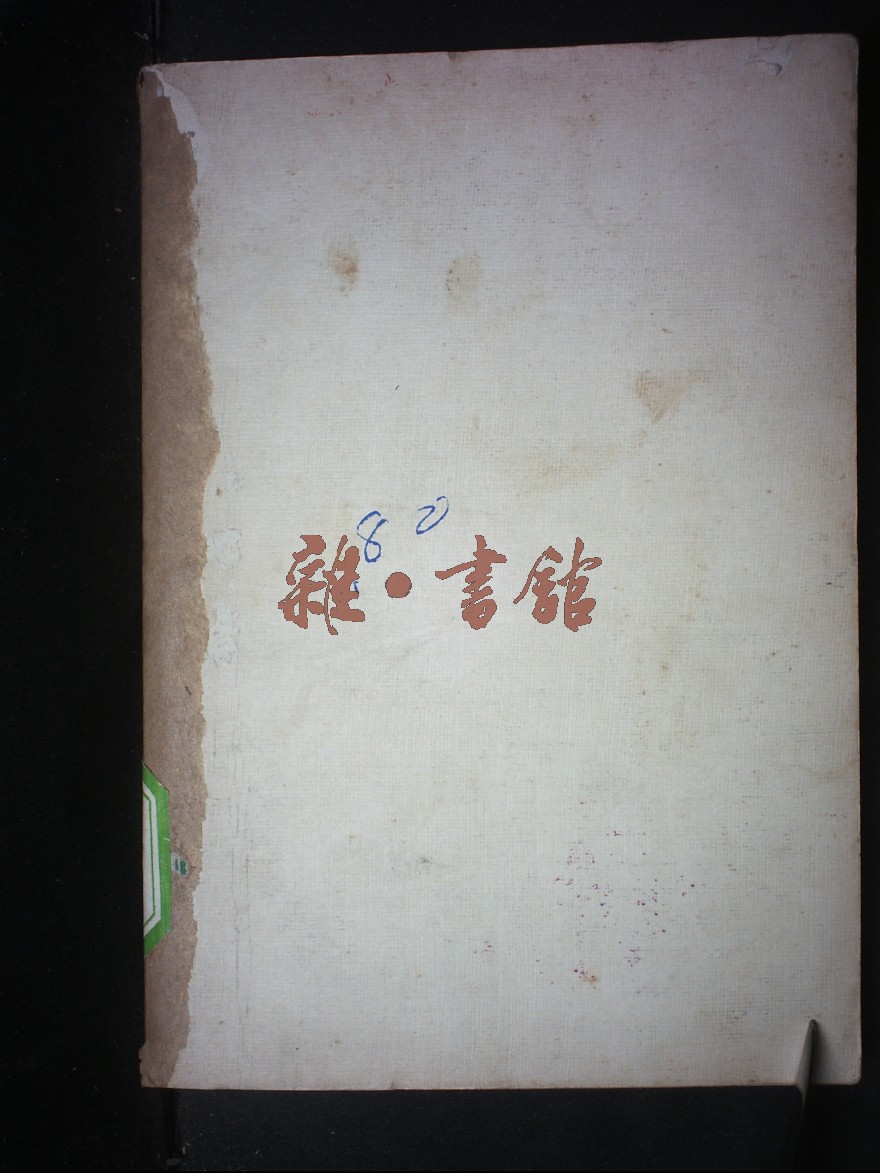 8 2
雜·書館